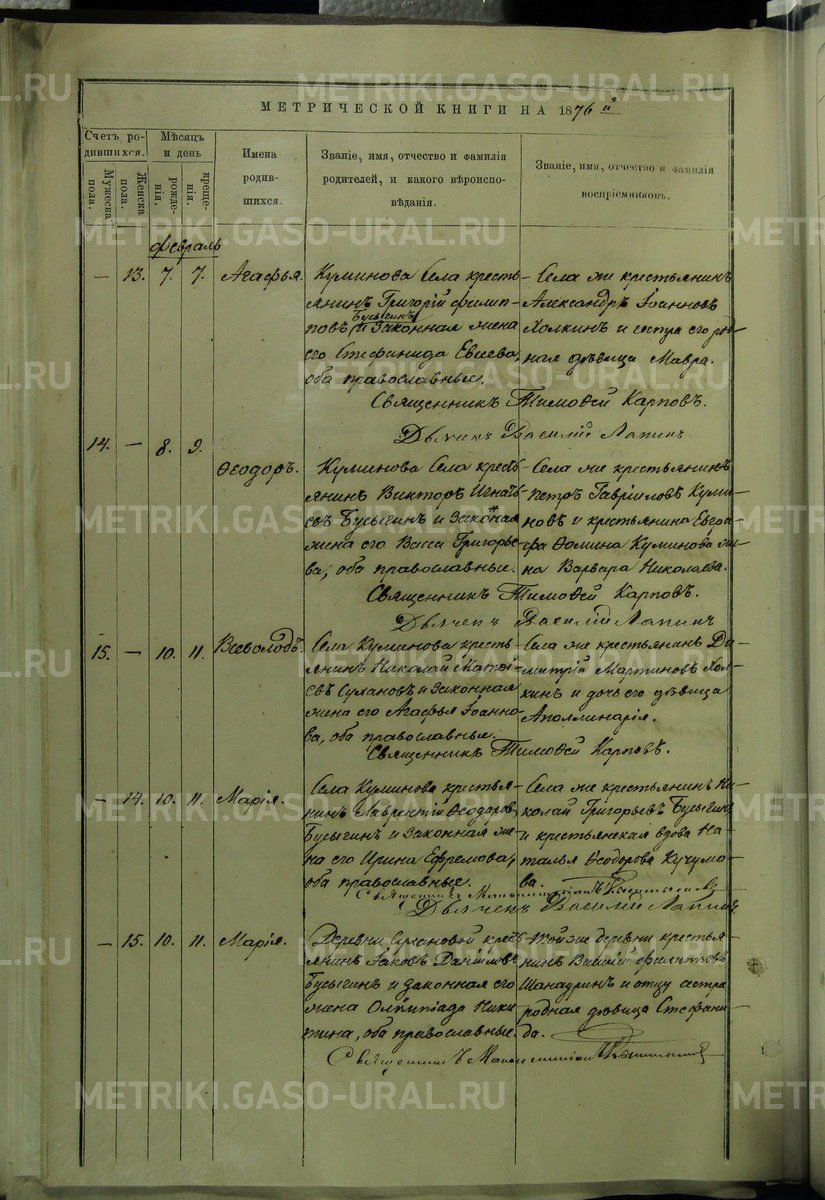 МЕТРИЧЕСКОЙ КНИГИ НА 1876 й
Счетъ ро-
дившихся.
Мужеска
пола.
Женска
пола.
Мѣсяцъ
и день
рожде-
нія.
креще-
нія.
Имена
родив-
шихся.
Званіе, имя, отчество и фамилія
родителей, и какого вѣроиспо-
вѣданія.
Званіе, имя, отчество и фамилія
воспріемниковъ.
февраль
— 13. 7. 7. Агафья.
Куминова Села кресть-
янинъ Григорій филип-
повъ Бусыгинъ и Законная жена
его Стефанида Евсеева,
оба православные.
Села же крестьянинъ
Александръ Іоанновъ
Холкинъ и сестра его род-
ная дѣвица Мавра.
Священникъ Тимоѳей Карповъ.
Дьячекъ Василій Лапинъ
14. — 8. 9. Ѳеодоръ.
Куминова Села кресть-
янинъ Викторъ Игнать-
евъ Бусыгинъ и Законная
жена его Васса Григорье-
ва, оба православные.
Села же крестьянинъ
Петръ Гавриловъ Куми-
новъ и крестьянина Евгра-
фа Ѳомина Куминова же-
на Варвара Николаева.
Священникъ Тимоѳей Карповъ.
Дьячекъ Василій Лапинъ
15. — 10. 11. Всеволодъ.
Села Куминова кресть-
янинъ Николай Матѳі-
евъ Сулановъ и Законная
жена его Агафья Іоанно-
ва, оба православные.
Села же крестьянинъ Ди-
митрій Мартиновъ Хол-
кинъ и дочь его дѣвица
Аполлинарія.
Священникъ Тимоѳей Карповъ.
— 14. 10. 11. Марія.
Села Куминова крестья-
нинъ Лаврентій Ѳеодоровъ
Бусыгинъ и Законная же-
на его Ирина Ефремова,
оба православные.
Села же крестьянинъ Ни-
колай Григорьевъ Бусыгинъ
и крестьянская вдова На-
талья Ѳеодорова Кучумо-
ва.
Священникъ
Дьячекъ Василій Лапинъ
— 15. 10. 11. Марія.
Деревни кресть-
янинъ Іаковъ Даніиловъ
Бусыгинъ и законная его
жена Олимпіада Ники-
тина, оба православные.
Тойже деревни крестья-
нинъ филиповъ
Шанауринъ и отцу сестра
родная дѣвица Стефани-
да.
Священникъ
METRIKI.GASO-URAL.RU